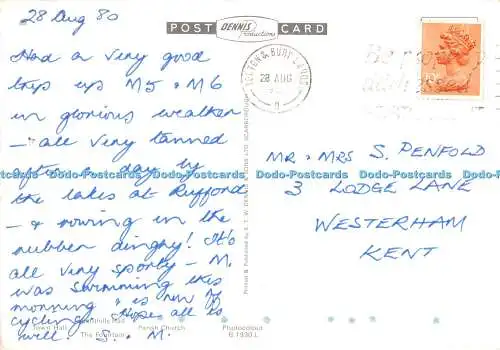 28 Aug 80
Had a very good
trip up M5 & M6
in glorious weather
- all very tanned
after a day by
the lakes at Rufford
- & rowing in the
rubber dinghy! It's
all very sporty - M.
was swimming this
morning & is now
cycling. Hope all is
well. S. & M.
POST CARD
DENNIS
Productions
28 AUG
MR & MRS S. PENFOLD
3 LODGE LANE
WESTERHAM
KENT
Town Hall
The Fountain
Parish Church
Photocolour
B.1930 L
Dodo-Postcards Dodo-Postcards Dodo-Postcards Dodo-Postcards